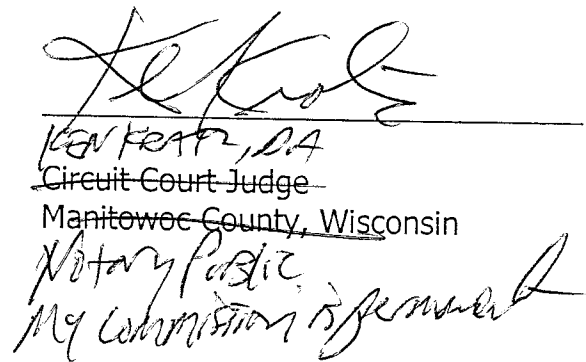 Ken Kratz
KEN KRATZ, DA
Circuit Court Judge
Manitowoc County, Wisconsin
Notary Public
My commission is permanent